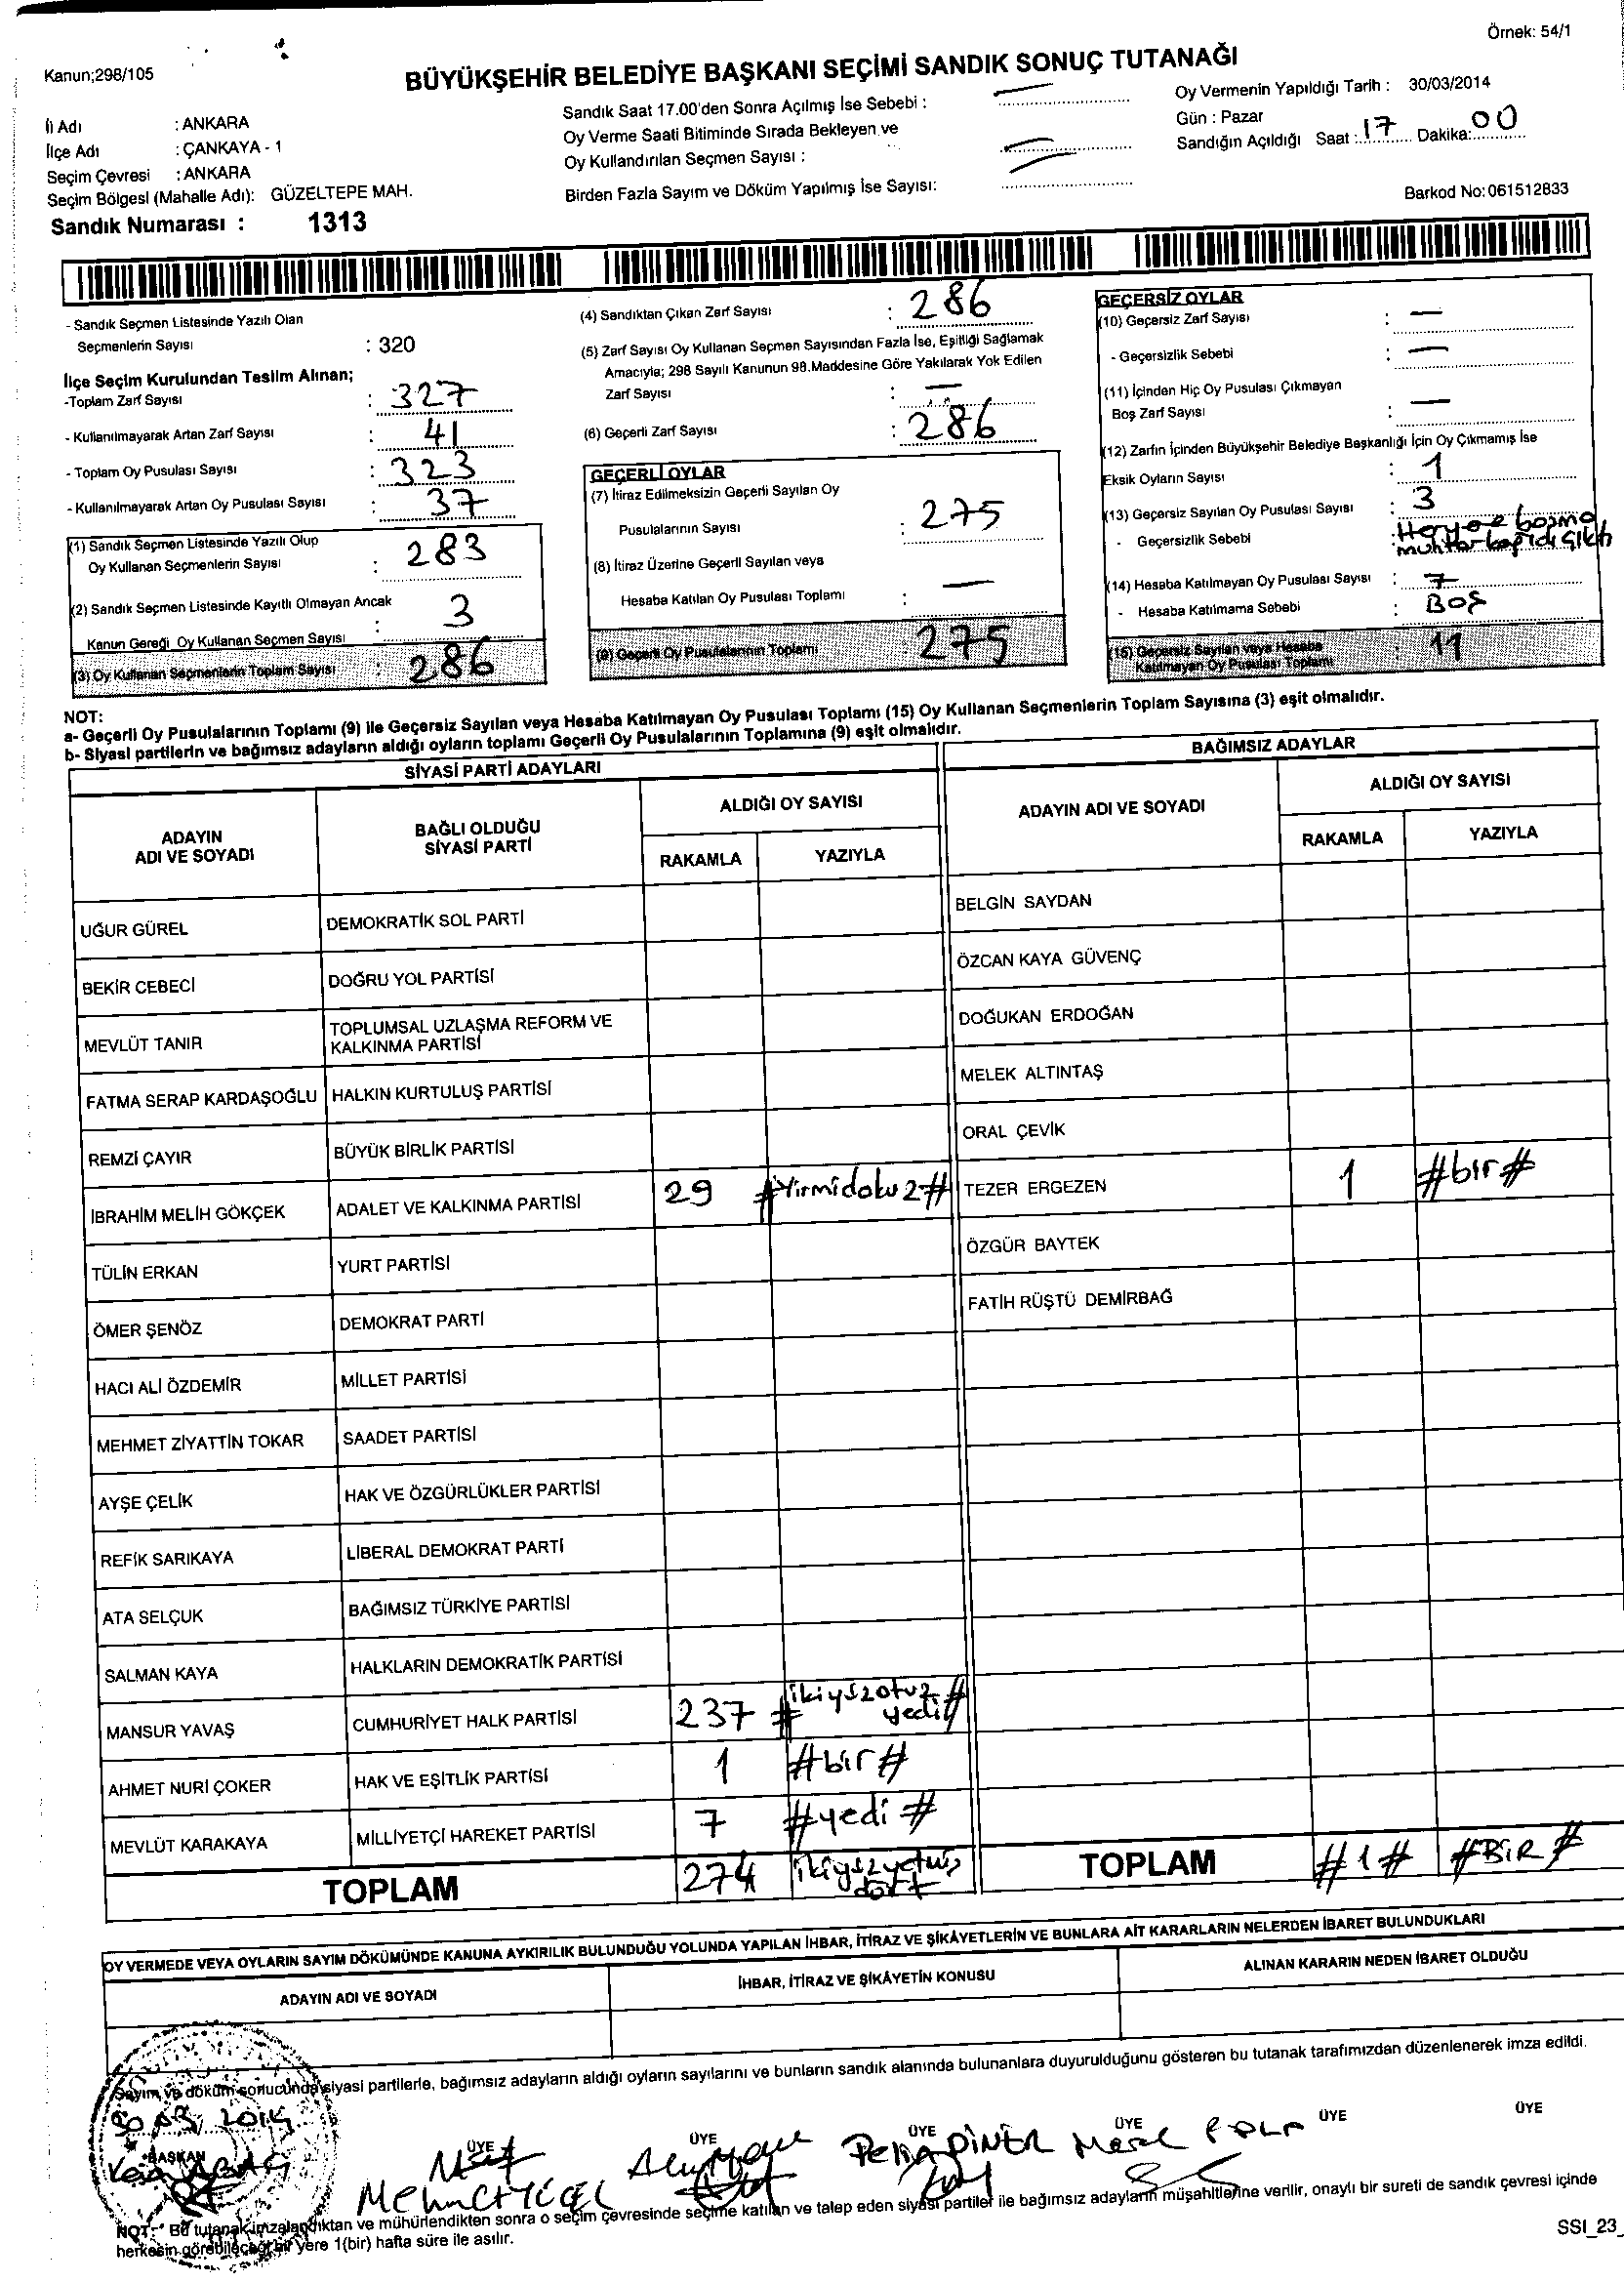 Örnek: 54/1
Kanun;298/105
BÜYÜKŞEHİR BELEDİYE BAŞKANI SEÇİMİ SANDIK SONUÇ TUTANAĞI
İl Adı : ANKARA
İlçe Adı : ÇANKAYA - 1
Seçim Çevresi : ANKARA
Seçim Bölgesi (Mahalle Adı): GÜZELTEPE MAH.
Sandık Numarası : 1313
Sandık Saat 17.00'den Sonra Açılmış İse Sebebi : —
Oy Verme Saati Bitiminde Sırada Bekleyen ve
Oy Kullandırılan Seçmen Sayısı : —
Birden Fazla Sayım ve Döküm Yapılmış İse Sayısı: —
Oy Vermenin Yapıldığı Tarih : 30/03/2014
Gün : Pazar
Sandığın Açıldığı Saat : 17 Dakika: 00
Barkod No: 061512833
- Sandık Seçmen Listesinde Yazılı Olan
Seçmenlerin Sayısı : 320
İlçe Seçim Kurulundan Teslim Alınan;
-Toplam Zarf Sayısı : 327
- Kullanılmayarak Artan Zarf Sayısı : 41
- Toplam Oy Pusulası Sayısı : 323
- Kullanılmayarak Artan Oy Pusulası Sayısı : 37
(1) Sandık Seçmen Listesinde Yazılı Olup
Oy Kullanan Seçmenlerin Sayısı : 283
(2) Sandık Seçmen Listesinde Kayıtlı Olmayan Ancak
Kanun Gereği Oy Kullanan Seçmen Sayısı : 3
(3) Oy Kullanan Seçmenlerin Toplam Sayısı : 286
(4) Sandıktan Çıkan Zarf Sayısı : 286
(5) Zarf Sayısı Oy Kullanan Seçmen Sayısından Fazla İse, Eşitliği Sağlamak
Amacıyla; 298 Sayılı Kanunun 98.Maddesine Göre Yakılarak Yok Edilen
Zarf Sayısı : —
(6) Geçerli Zarf Sayısı : 286
GEÇERLİ OYLAR
(7) İtiraz Edilmeksizin Geçerli Sayılan Oy
Pusulalarının Sayısı : 275
(8) İtiraz Üzerine Geçerli Sayılan veya
Hesaba Katılan Oy Pusulası Toplamı : —
(9) Geçerli Oy Pusulalarının Toplamı 275
GEÇERSİZ OYLAR
(10) Geçersiz Zarf Sayısı : —
- Geçersizlik Sebebi : —
(11) İçinden Hiç Oy Pusulası Çıkmayan
Boş Zarf Sayısı : —
(12) Zarfın İçinden Büyükşehir Belediye Başkanlığı İçin Oy Çıkmamış İse
Eksik Oyların Sayısı : 1
(13) Geçersiz Sayılan Oy Pusulası Sayısı : 3
- Geçersizlik Sebebi : Heryere basma
muhtar kağıdı çıktı
(14) Hesaba Katılmayan Oy Pusulası Sayısı : 7
- Hesaba Katılmama Sebebi : Boş
(15) Geçersiz Sayılan veya Hesaba
Katılmayan Oy Pusulası Toplamı : 11
NOT:
a- Geçerli Oy Pusulalarının Toplamı (9) ile Geçersiz Sayılan veya Hesaba Katılmayan Oy Pusulası Toplamı (15) Oy Kullanan Seçmenlerin Toplam Sayısına (3) eşit olmalıdır.
b- Siyasi partilerin ve bağımsız adayların aldığı oyların toplamı Geçerli Oy Pusulalarının Toplamına (9) eşit olmalıdır.
SİYASİ PARTİ ADAYLARI
ADAYIN ADI VE SOYADI BAĞLI OLDUĞU SİYASİ PARTİ ALDIĞI OY SAYISI
RAKAMLA YAZIYLA
UĞUR GÜREL DEMOKRATİK SOL PARTİ
BEKİR CEBECİ DOĞRU YOL PARTİSİ
MEVLÜT TANIR TOPLUMSAL UZLAŞMA REFORM VE KALKINMA PARTİSİ
FATMA SERAP KARDAŞOĞLU HALKIN KURTULUŞ PARTİSİ
REMZİ ÇAYIR BÜYÜK BİRLİK PARTİSİ
İBRAHİM MELİH GÖKÇEK ADALET VE KALKINMA PARTİSİ 29 #Yirmidokuz#
TÜLİN ERKAN YURT PARTİSİ
ÖMER ŞENÖZ DEMOKRAT PARTİ
HACI ALİ ÖZDEMİR MİLLET PARTİSİ
MEHMET ZİYATTİN TOKAR SAADET PARTİSİ
AYŞE ÇELİK HAK VE ÖZGÜRLÜKLER PARTİSİ
REFİK SARIKAYA LİBERAL DEMOKRAT PARTİ
ATA SELÇUK BAĞIMSIZ TÜRKİYE PARTİSİ
SALMAN KAYA HALKLARIN DEMOKRATİK PARTİSİ
MANSUR YAVAŞ CUMHURİYET HALK PARTİSİ 237 #ikiyüzotuz yedi#
AHMET NURİ ÇOKER HAK VE EŞİTLİK PARTİSİ 1 #bir#
MEVLÜT KARAKAYA MİLLİYETÇİ HAREKET PARTİSİ 7 #yedi#
TOPLAM 274 ikiyüzyetmiş dört
BAĞIMSIZ ADAYLAR
ADAYIN ADI VE SOYADI ALDIĞI OY SAYISI
RAKAMLA YAZIYLA
BELGİN SAYDAN
ÖZCAN KAYA GÜVENÇ
DOĞUKAN ERDOĞAN
MELEK ALTINTAŞ
ORAL ÇEVİK
TEZER ERGEZEN 1 #bir#
ÖZGÜR BAYTEK
FATİH RÜŞTÜ DEMİRBAĞ
TOPLAM #1# #BİR#
OY VERMEDE VEYA OYLARIN SAYIM DÖKÜMÜNDE KANUNA AYKIRILIK BULUNDUĞU YOLUNDA YAPILAN İHBAR, İTİRAZ VE ŞİKÂYETLERİN VE BUNLARA AİT KARARLARIN NELERDEN İBARET BULUNDUKLARI
ADAYIN ADI VE SOYADI İHBAR, İTİRAZ VE ŞİKÂYETİN KONUSU ALINAN KARARIN NEDEN İBARET OLDUĞU
Sayım ve döküm sonucunda siyasi partilerle, bağımsız adayların aldığı oyların sayılarını ve bunların sandık alanında bulunanlara duyurulduğunu gösteren bu tutanak tarafımızdan düzenlenerek imza edildi.
30.03.2014
BAŞKAN ÜYE ÜYE ÜYE ÜYE ÜYE ÜYE
NOT: Bu tutanak imzalandıktan ve mühürlendikten sonra o seçim çevresinde seçime katılan ve talep eden siyasi partiler ile bağımsız adayların müşahitlerine verilir, onaylı bir sureti de sandık çevresi içinde
herkesin görebileceği bir yere 1(bir) hafta süre ile asılır.
SSI_23_